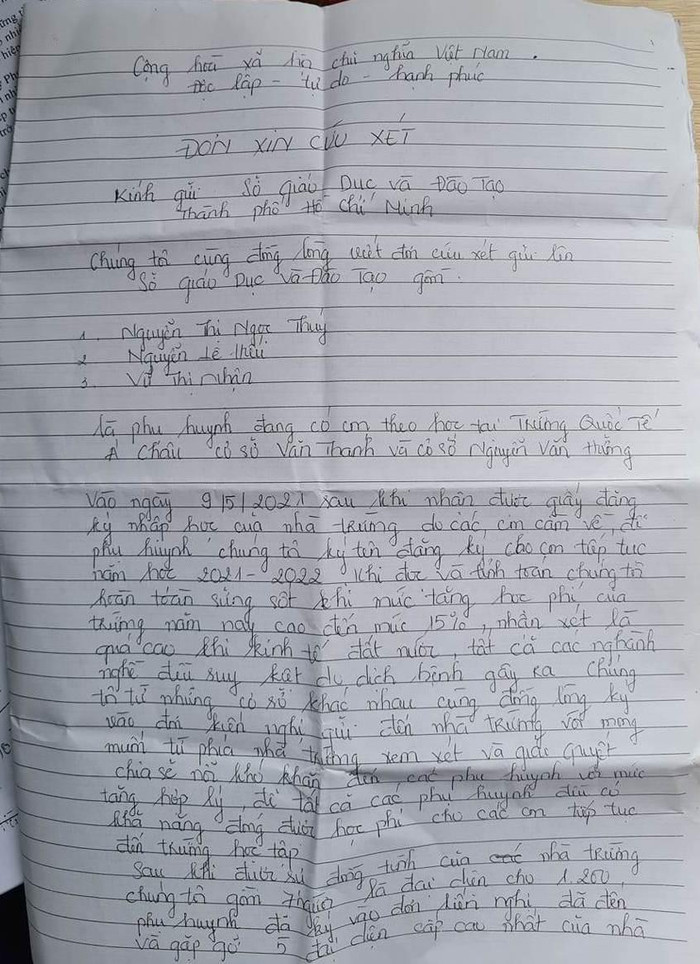 Cộng hoà xã hội chủ nghĩa Việt Nam.
Độc lập - tự do - hạnh phúc
ĐƠN XIN CỨU XÉT
Kính gửi Sở giáo Dục và Đào Tạo
Thành phố Hồ Chí Minh
Chúng tôi cùng đồng lòng viết đơn cứu xét gửi lên
Sở giáo Dục và Đào Tạo gồm.
1. Nguyễn Thị Ngọc Thuý
2 Nguyễn Lê
3. Vũ Thị Nhận
là phụ huynh đang có em theo học tại Trường Quốc Tế
Á Châu cơ sở Văn Thánh và cơ sở Nguyễn Văn Hưởng
Vào ngày 9/5/2021 sau khi nhận được giấy đăng
ký nhập học của nhà trường do các em cầm về, để
phụ huynh chúng tôi ký tên đăng ký cho em tiếp tục
năm học 2021-2022. Khi đọc và tính toán chúng tôi
hoàn toàn sững sốt khi mức tăng học phí của
trường năm nay cao đến mức 15%, nhận xét là
quá cao khi kinh tế đất nước, tất cả các nghành
nghề đều suy kiệt do dịch bệnh gây ra chúng
tôi từ những cơ sở khác nhau cùng đồng lòng ký
vào đơn kiến nghị gửi đến nhà trường với mong
muốn từ phía nhà trường xem xét và giải quyết
chia sẽ nỗi khó khăn đến các phụ huynh với mức
tăng hợp lý, để tất cả các phụ huynh đều có
khả năng đóng được học phí cho các em tiếp tục
đến trường học tập
Sau khi được sự đồng tình của các nhà trường
chúng tôi gồm 7 người là đại diện cho 1.200
phụ huynh đã ký vào đơn kiến nghị, đã đến
và gặp gỡ 5 đại diện cấp cao nhất của nhà